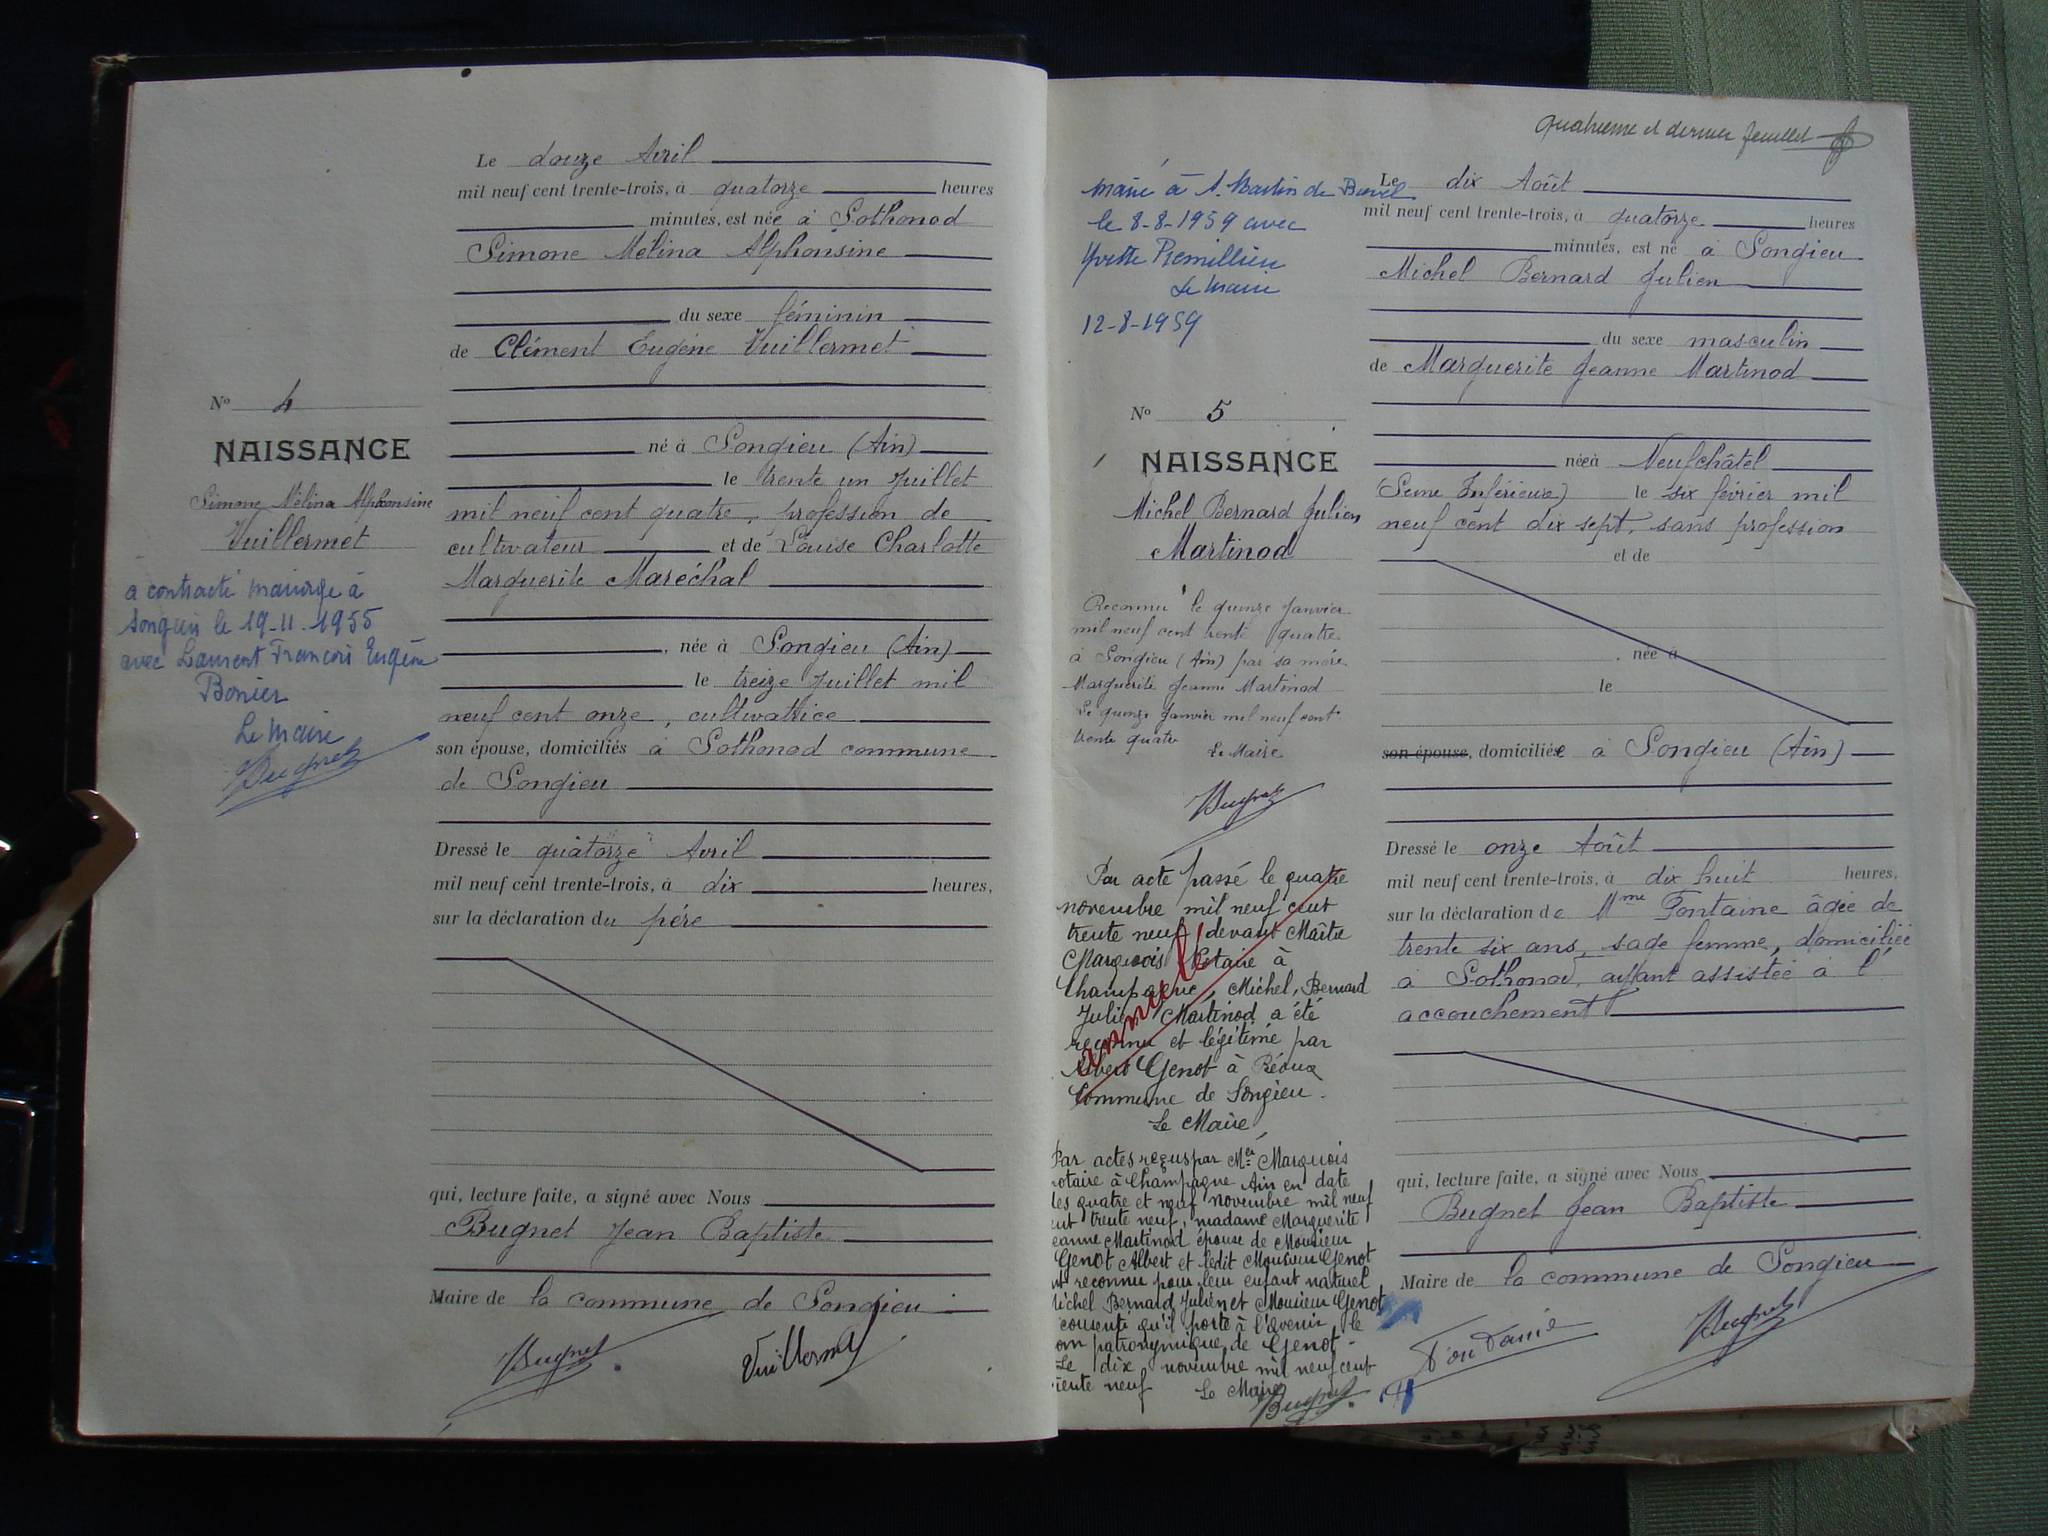 Le douze Avril
mil neuf cent trente-trois, à quatorze heures
minutes, est née à Sothonod
Simone Mélina Alphonsine
du sexe féminin
de Clément Eugène Vuillermet
né à Songieu (Ain)
le trente un Juillet
mil neuf cent quatre, profession de
cultivateur et de Louise Charlotte
Marguerite Maréchal
, née à Songieu (Ain)
le treize Juillet mil
neuf cent onze, cultivatrice
son épouse, domiciliés à Sothonod commune
de Songieu
Dressé le quatorze Avril
mil neuf cent trente-trois, à dix heures,
sur la déclaration du père
qui, lecture faite, a signé avec Nous
Bugnet Jean Baptiste
Maire de la commune de Songieu
Bugnet Vuillermet
No 4
NAISSANCE
Simone Mélina Alphonsine
Vuillermet
a contracté mariage à
Songieu le 19-11-1955
avec Laurent François Eugène
Bonier
Le Maire
Bugnet
Quatrième et dernier feuillet
Marié à S. Martin de
le 8-8-1959 avec
Yvette Remillieu
Le Maire
12-8-1959
No 5
NAISSANCE
Michel Bernard Julien
Martinod
Reconnu le quinze Janvier
mil neuf cent trente quatre
à Songieu (Ain) par sa mère
Marguerite Jeanne Martinod
Le quinze Janvier mil neuf cent
trente quatre Le Maire
Bugnet
Par acte passé le quatre
novembre mil neuf cent
trente neuf devant Maître
Marquois Notaire à
Champagne, Michel, Bernard
Julien Martinod a été
reconnu et légitimé par
Albert Genot à Réoux
Commune de Songieu.
Le Maire
annulé
Par actes reçus par Me Marquois
notaire à Champagne Ain en date
des quatre et neuf novembre mil neuf
cent trente neuf, madame Marguerite
Jeanne Martinod épouse de Monsieur
Genot Albert et ledit Monsieur Genot
ont reconnu pour leur enfant naturel
Michel Bernard Julien et Monsieur Genot
consente qu'il porte à l'avenir le
nom patronymique de Genot -
Le dix novembre mil neuf cent
trente neuf Le Maire
Bugnet
Le dix Août
mil neuf cent trente-trois, à quatorze heures
minutes, est né à Songieu
Michel Bernard Julien
du sexe masculin
de Marguerite Jeanne Martinod
née à Neufchâtel
(Seine Inférieure) le six février mil
neuf cent dix sept, sans profession
et de
, née à
le
son épouse, domiciliée à Songieu (Ain)
Dressé le onze Août
mil neuf cent trente-trois, à dix huit heures,
sur la déclaration de Mme Fontaine âgée de
trente six ans, sage femme, domiciliée
à Sothonod, ayant assistée à l'
accouchement
qui, lecture faite, a signé avec Nous
Bugnet Jean Baptiste
Maire de la commune de Songieu
Fontaine Bugnet